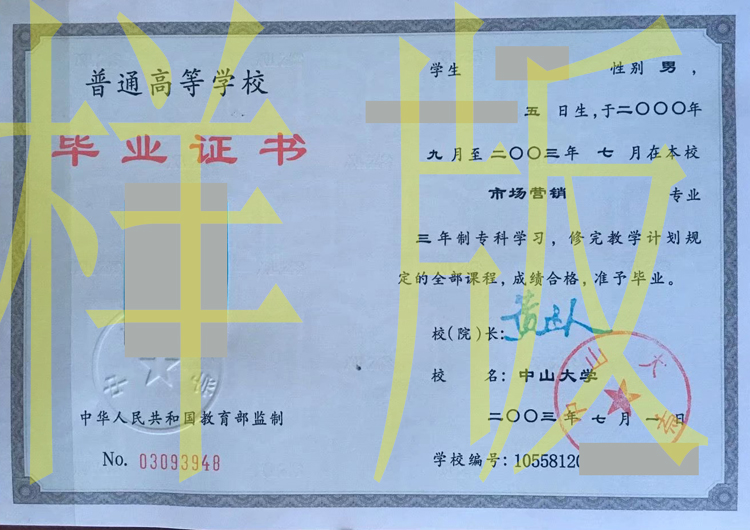 普通高等学校
毕业证书
中华人民共和国教育部监制
No. 03093948
学生 性别 男，
五 日生，于二〇〇〇年
九月至二〇〇三年 七 月在本校
市场营销 专业
三年制专科学习，修完教学计划规
定的全部课程，成绩合格，准予毕业。
校(院)长：
校 名：中山大学
二〇〇三年 七 月 一 日
学校编号：10558120
中山大学
样版